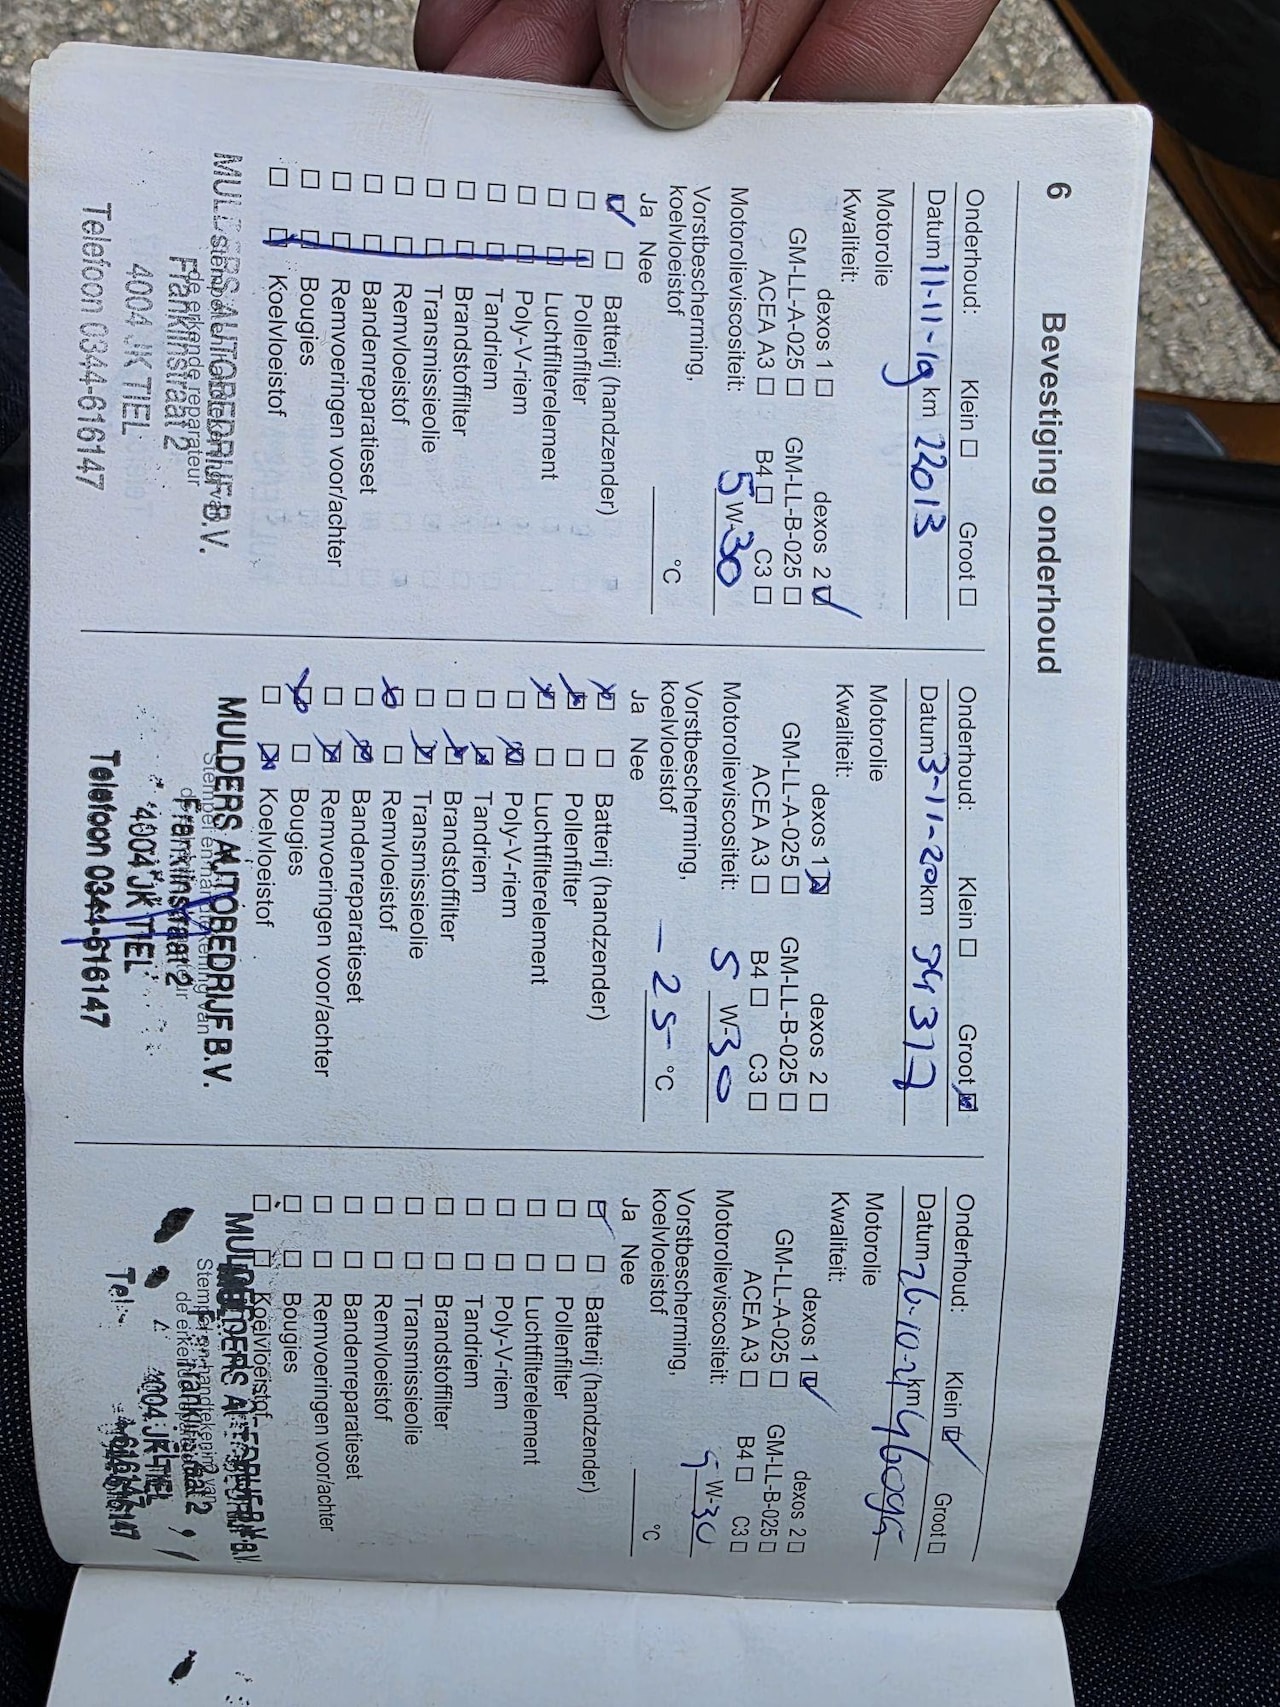 6 Bevestiging onderhoud
Onderhoud: Klein Groot
Datum 11-11-19 km 22013
Motorolie
Kwaliteit:
dexos 1 dexos 2
GM-LL-A-025 GM-LL-B-025
ACEA A3 B4 C3
Motorolieviscositeit: 5 W-30
Vorstbescherming,
koelvloeistof °C
Ja Nee
Batterij (handzender)
Pollenfilter
Luchtfilterelement
Poly-V-riem
Tandriem
Brandstoffilter
Transmissieolie
Remvloeistof
Bandenreparatieset
Remvoeringen voor/achter
Bougies
Koelvloeistof
MULDERS AUTOBEDRIJF B.V.
de erkende reparateur
Franklinstraat 2
4004 JK TIEL
Telefoon 0344-616147
Onderhoud: Klein Groot
Datum 3-11-20 km 34317
Motorolie
Kwaliteit:
dexos 1 dexos 2
GM-LL-A-025 GM-LL-B-025
ACEA A3 B4 C3
Motorolieviscositeit: 5 W-30
Vorstbescherming,
koelvloeistof -25 °C
Ja Nee
Batterij (handzender)
Pollenfilter
Luchtfilterelement
Poly-V-riem
Tandriem
Brandstoffilter
Transmissieolie
Remvloeistof
Bandenreparatieset
Remvoeringen voor/achter
Bougies
Koelvloeistof
Stempel en handtekening van
MULDERS AUTOBEDRIJF B.V.
Franklinstraat 2
4004 JK TIEL
Telefoon 0344-616147
Onderhoud: Klein Groot
Datum 26-10-21 km
Motorolie
Kwaliteit:
dexos 1 dexos 2
GM-LL-A-025 GM-LL-B-025
ACEA A3 B4 C3
Motorolieviscositeit: 5 W-30
Vorstbescherming,
koelvloeistof °C
Ja Nee
Batterij (handzender)
Pollenfilter
Luchtfilterelement
Poly-V-riem
Tandriem
Brandstoffilter
Transmissieolie
Remvloeistof
Bandenreparatieset
Remvoeringen voor/achter
Bougies
Koelvloeistof
Stempel en handtekening van
MULDERS AUTOBEDRIJF B.V.
Franklinstraat 2
4004 JK TIEL
Tel. 616147